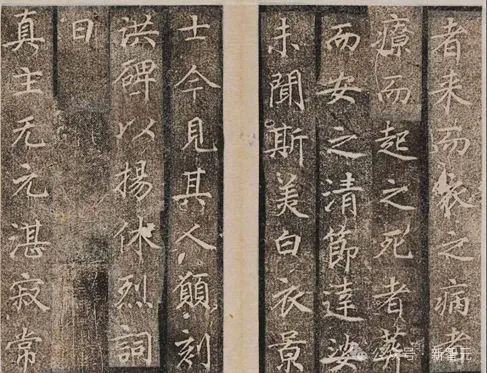 者来而衣之病者
療而起之死者葬
而安之清節達娑
未聞斯美白衣景
士今見其人願刻
洪碑以揚休烈詞
曰
真主无元湛寂常
公众号·新智元